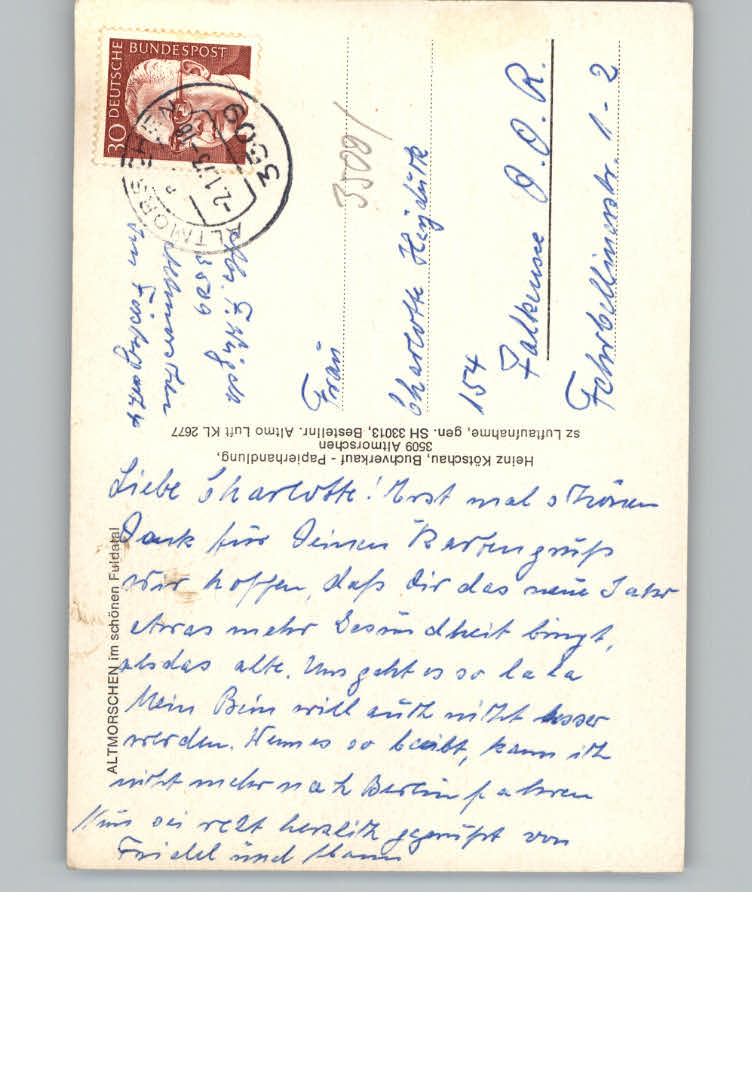 Liebe Charlotte! Erst mal schönen
Dank für Deinen Kartengruß
Wir hoffen, daß Dir das neue Jahr
etwas mehr Gesundheit bringt,
als das alte. Uns geht es so la la
Mein Bein will auch nicht besser
werden. Wenn es so bleibt, kann ich
nicht mehr nach Berlin fahren
Nun sei recht herzlich gegrüßt von
Friedel und Hans
ALTMORSCHEN im schönen Fuldatal
Heinz Kötschau, Buchverkauf - Papierhandlung,
3509 Altmorschen
sz Luftaufnahme, gen. SH 33013, Bestellnr. Altmo Luft KL 2677
Abs. F.
3509
Altmorschen
DEUTSCHE BUNDESPOST
30
3509
ALTMORSCHEN
-2.1.73-18
3509/
Frau
Charlotte
154
Falkensee D.D.R.
Fehrbellinerstr. 1-2